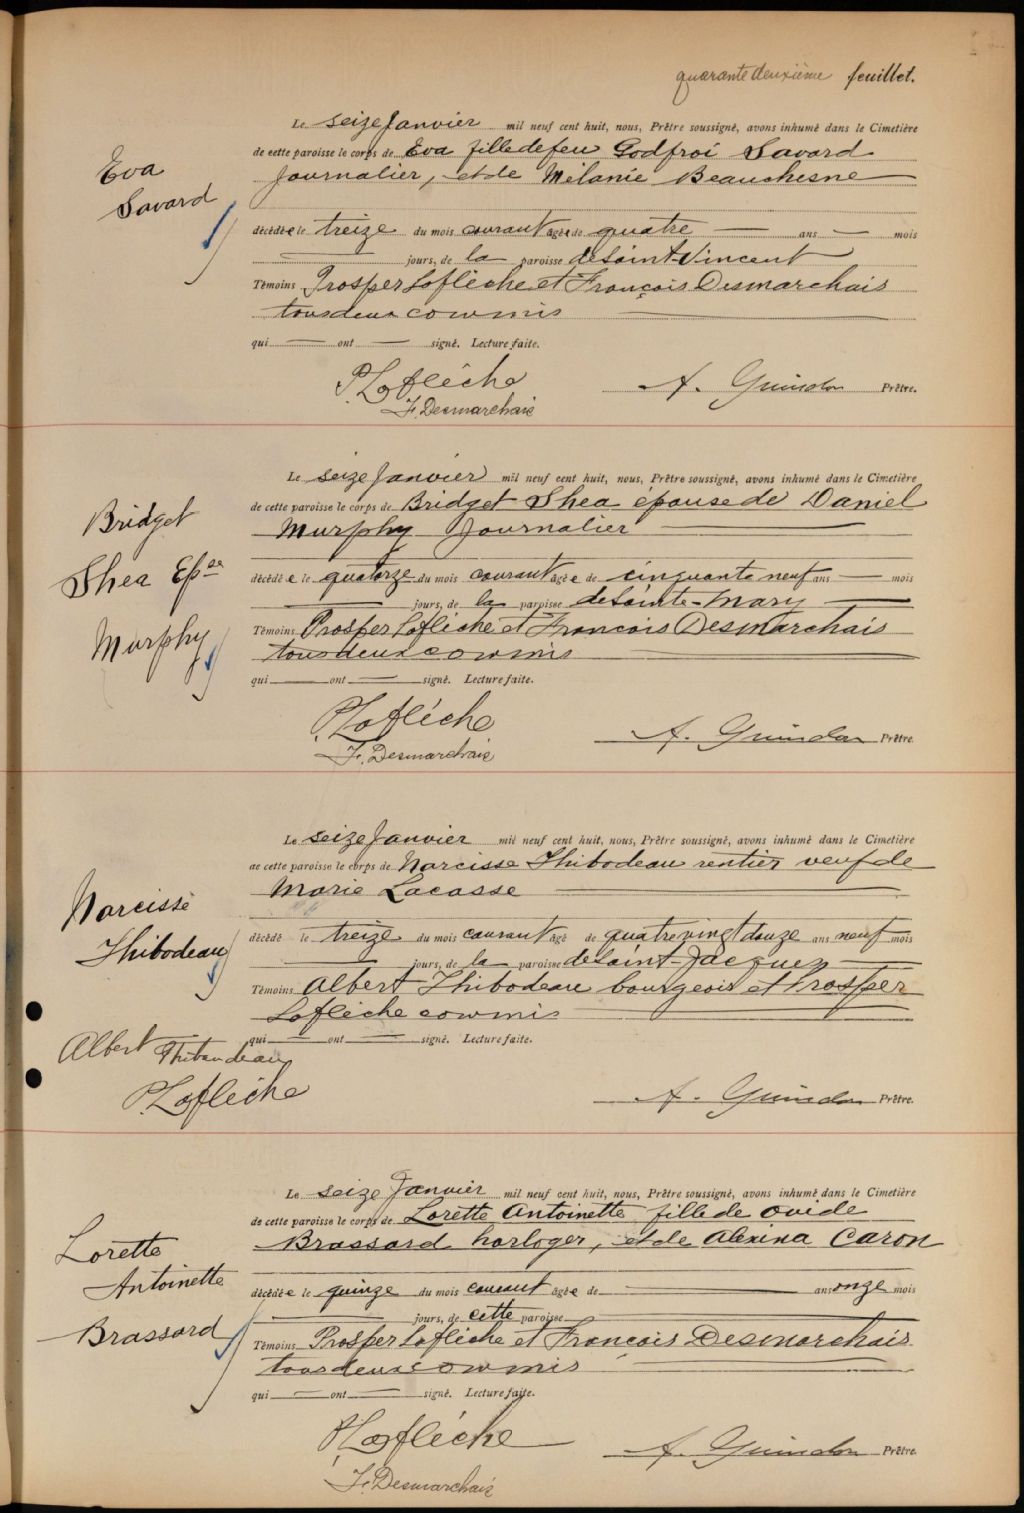 quarante deuxième feuillet.
Le seize Janvier mil neuf cent huit, nous, Prêtre soussigné, avons inhumé dans le Cimetière
de cette paroisse le corps de Eva fille de feu Godfroi Savard
Journalier, et de Mélanie Beauchesne
Eva
Savard
décédée le treize du mois courant âgée de quatre — ans — mois
— jours, de la paroisse de Saint-Vincent
Témoins Prosper Laflèche et François Desmarchais
tous deux commis
qui — ont — signé. Lecture faite.
P. Laflèche
F. Desmarchais
A. Guindon Prêtre.
Le seize Janvier mil neuf cent huit, nous, Prêtre soussigné, avons inhumé dans le Cimetière
de cette paroisse le corps de Bridget Shea épouse de Daniel
Murphy Journalier
Bridget
Shea Epse
Murphy
décédée le quatorze du mois courant âgée de cinquante neuf ans — mois
— jours, de la paroisse de Sainte-Mary
Témoins Prosper Laflèche et François Desmarchais
tous deux commis
qui — ont — signé. Lecture faite.
P. Laflèche
F. Desmarchais
A. Guindon Prêtre.
Le seize Janvier mil neuf cent huit, nous, Prêtre soussigné, avons inhumé dans le Cimetière
de cette paroisse le corps de Narcisse Thibodeau rentier veuf de
Marie Lacasse
Narcisse
Thibodeau
décédé le treize du mois courant âgé de quatrevingt douze ans neuf mois
— jours, de la paroisse de Saint-Jacques
Témoins Albert Thibodeau bourgeois et Prosper
Laflèche commis
qui — ont — signé. Lecture faite.
Albert Thibaudeau
P. Laflèche
A. Guindon Prêtre.
Le seize Janvier mil neuf cent huit, nous, Prêtre soussigné, avons inhumé dans le Cimetière
de cette paroisse le corps de Lorette Antoinette fille de Ovide
Brassard horloger, et de Alexina Caron
Lorette
Antoinette
Brassard
décédée le quinze du mois courant âgée de — ans onze mois
— jours, de cette paroisse
Témoins Prosper Laflèche et François Desmarchais
tous deux commis
qui — ont — signé. Lecture faite.
P. Laflèche
F. Desmarchais
A. Guindon Prêtre.